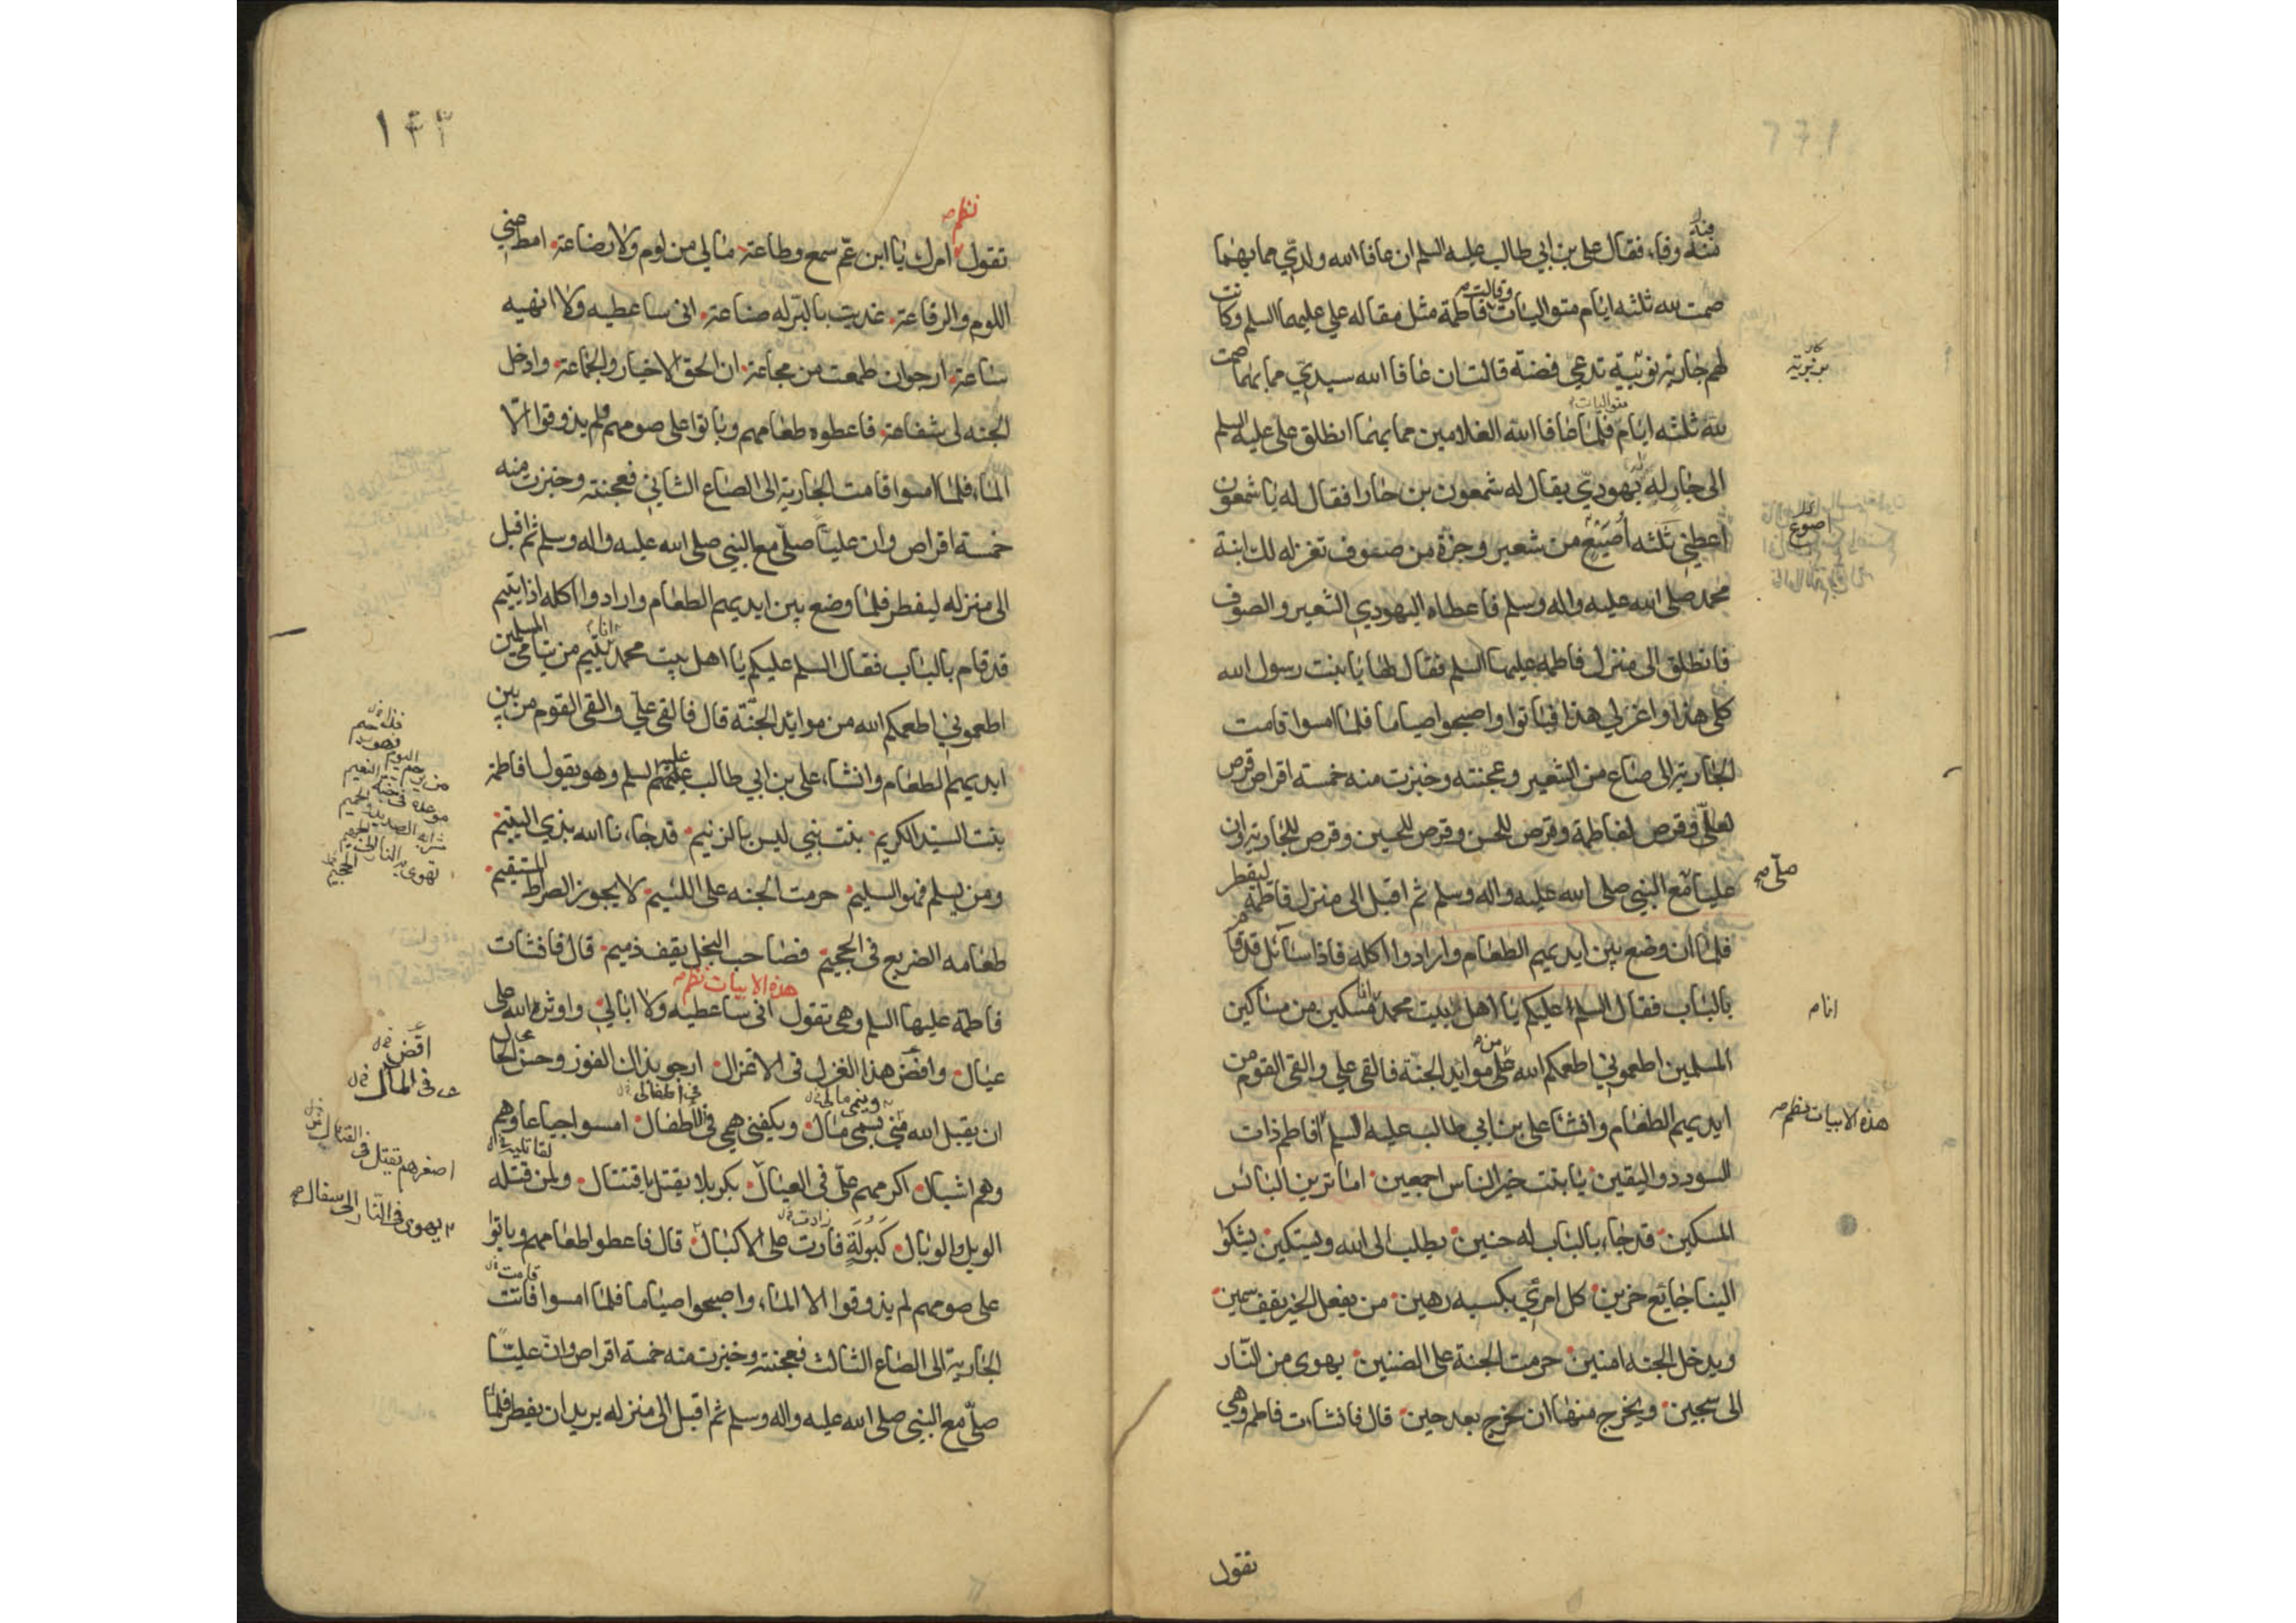 وفاء فقال علي بن ابي طالب عليه السلم ان عافا الله ولدي مما بهما
صمت لله ثلثه ايام متواليات وقالت فاطمة مثل مقاله علي عليهما السلم وكانت
لهم جارية نوبية تدعي فضة قالت ان عافا الله سيدي مما بهما صمت
لله ثلثه ايام متواليات فلما عافا الله الغلامين مما بهما انطلق علي عليه السلم
الى جار له يهودي يقال له شمعون بن حارا فقال له يا شمعون
اعطني ثلثه اصيع من شعير وجزة من صوف تغزله لك ابنة
اصوع
محمد صلى الله عليه واله وسلم فاعطاه اليهودي الشعير والصوف
فانطلق الى منزل فاطمه عليها السلم فقال لها يا بنت رسول الله
كلي هذا واغزلي هذا فباتوا واصبحوا صياما فلما امسوا قامت
الجارية الى صاع من الشعير وعجنته وخبزت منه خمسة اقراص قرص
لعلي وقرص لفاطمة وقرص للحسن وقرص للحسين وقرص للجارية وان
عليا مع النبي صلى الله عليه واله وسلم ثم اقبل الى منزل فاطمة ليفطر
صلى صح
فلما ان وضع بين ايديهم الطعام وارادوا اكله فاذا سائل قد قام
بالباب فقال السلم عليكم يا اهل بيت محمد انا مسكين من مساكين
انا م
المسلمين اطعموني اطعمكم الله من على موايد الجنة فالقى علي والقى القوم من
ايديهم الطعام وانشا علي بن ابي طالب عليه السلم افاطم ذات
هذه الابيات نظم
السودد واليقين يا بنت خير الناس اجمعين اما ترين البائس
المسكين قد جاء بالباب له حنين يطلب الى الله ويستكين يشكوا
الينا جايع حزين كل امرئ بكسبه رهين من يفعل الخير يقف سمين
ويدخل الجنه امنين حرمت الجنة على الضنين يهوى من النار
الى سجين ويخرج منها ان يخرج بعد حين قال فانشات فاطم وهي
تقول
١٤٣
نظم
تقول امرك يا ابن عم سمع وطاعة ما لي من لوم ولا رضاعة امط عني
اللوم والرقاعة غديت بالبر له صناعة اني ساعطيه ولا انهيه
ساعة ارجو ان طمعت من مجاعة ان الحق الاخيار والجماعة وادخل
الجنه لي شفاعة فاعطوه طعامهم وباتوا على صومهم فلم يذوقوا الا
الماء فلما امسوا قامت الجارية الى الصاع الثاني فعجنته وخبزت منه
خمسة اقراص وان عليا صلى مع النبي صلى الله عليه واله وسلم ثم اقبل
الى منزله ليفطر فلما وضع بين ايديهم الطعام وارادوا اكله اذا يتيم
قد قام بالباب فقال السلم عليكم يا اهل بيت محمد انا يتيم من يتامى المسلمين
اطعموني اطعمكم الله من موائد الجنة قال فالقى علي والقى القوم من بين
ايديهم الطعام وانشاء علي بن ابي طالب عليهم السلم وهو يقول افاطمة
بنت السيد الكريم بنت نبي ليس بالزنيم قد جاءنا الله بذي اليتيم
ومن يسلم فهو السليم حرمت الجنه على اللئيم لا يجوز الصراط المستقيم
طعامه الضريع في الجحيم فصاحب البخل يقف ذميم قال فانشات
هذه الابيات نظم
فاطمة عليها السلم وهي تقول اني ساعطيه ولا ابالي واوثر الله على
عيال واقض هذا الغزل في الاغزال ارجو بذاك الفوز وحسن الحال
اقض
في المآل
ان يقبل الله مني ينمي مال ويكفني همي في الاطفال امسوا جياعا وهم
وهم اشبال اكرمهم علي في العيال بكربلا يقتل باقتتال ولمن قتله
اصغرهم يقتل في القتال
الويل والوبال كبولة فارت على الاكبال قال فاعطوا طعامهم وباتوا
يهوى في النار الى سفال
على صومهم لم يذوقوا الا الماء واصبحوا صياما فلما امسوا فاتت
الجارية الى الصاع الثالث فعجنته وخبزت منه خمسة اقراص وان عليا
صلى مع النبي صلى الله عليه واله وسلم ثم اقبل الى منزله يريد ان يفطر فلما